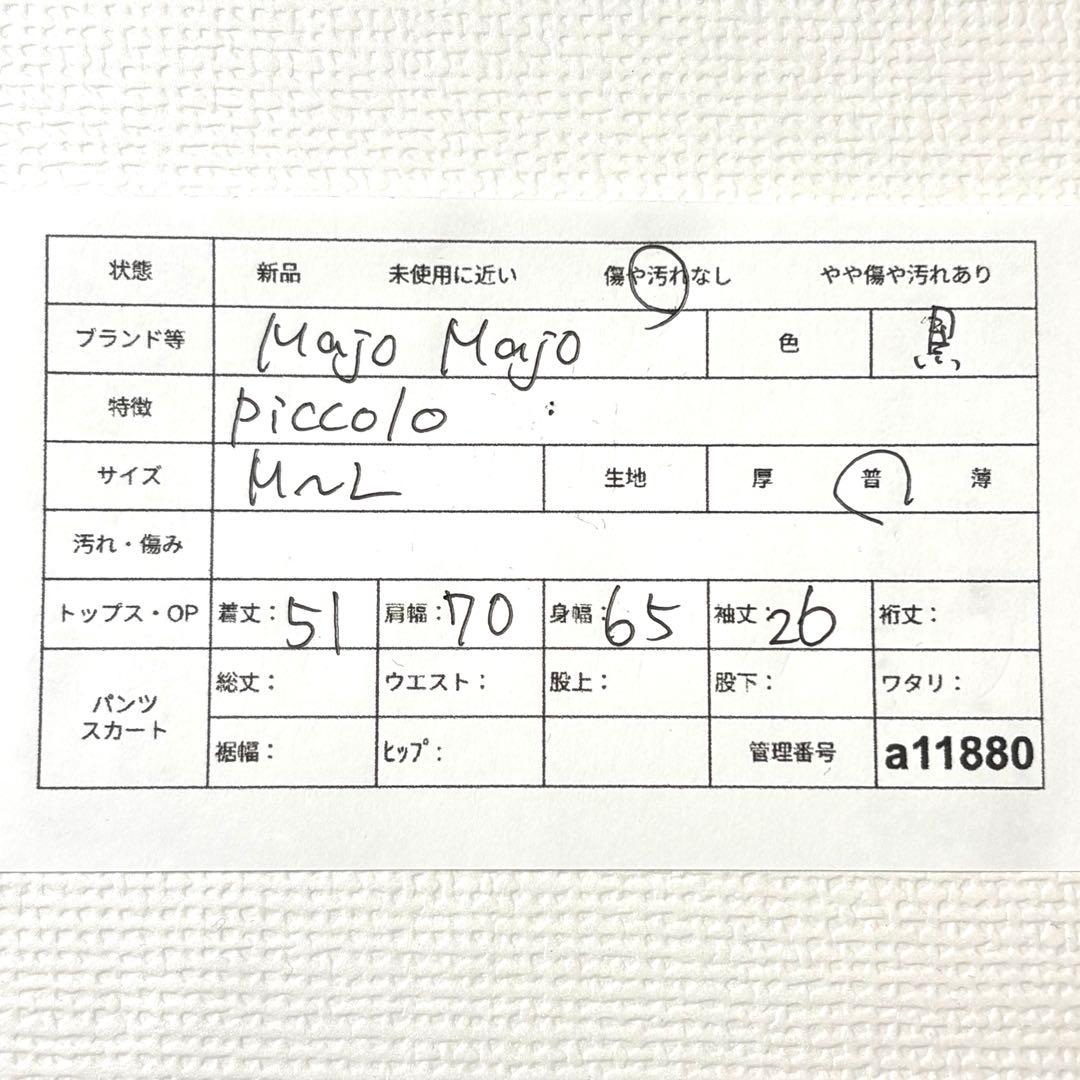 状態 新品 未使用に近い 傷や汚れなし やや傷や汚れあり
ブランド等 Majo Majo 色 黒
特徴 piccolo :
サイズ M~L 生地 厚 普 薄
汚れ・傷み
トップス・OP 着丈:51 肩幅:70 身幅:65 袖丈:26 裄丈:
パンツ スカート
総丈: ウエスト: 股上: 股下: ワタリ:
裾幅: ヒップ: 管理番号 a11880